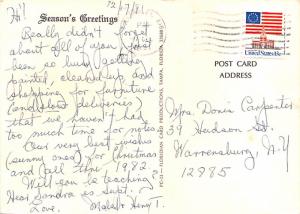 Hi!
Season's Greetings
Really didn't forget
about all of you. Just
been so busy getting
painted, cleaned up and
shopping for furniture
(and about deliveries)
that we haven't had
too much time for notes.
Our very best wishes
(sunny ones) for Christmas
and all thru 1982.
Will you be teaching?
Hear Sandra is Supt.
Love,
PC-51 - FLORIDIANA CARD PRODUCTIONS, TAMPA, FLORIDA
United States 15c
POST CARD
ADDRESS
Mrs. Doris Carpenter
39 Hudson St.
Warrensburg, N.Y
12885